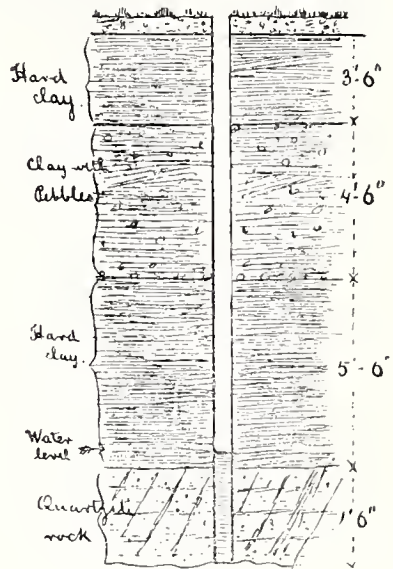 Hard
clay.
3'6"
Clay with
Pebbles
4'6"
Hard
clay.
5'-6"
Water
level
Quartzite
rock
1'6"